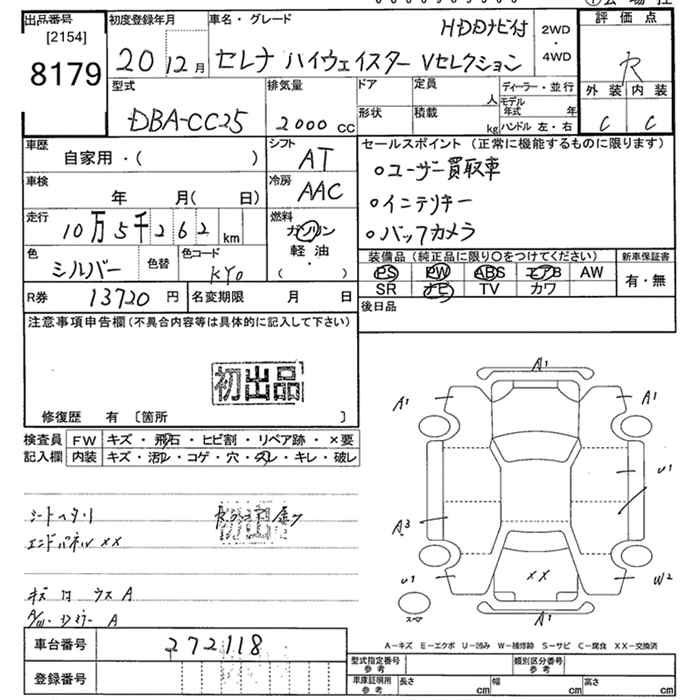 出品番号 初度登録年月 車名・グレード 評価点
[2154]
8179 20 12月 セレナ ハイウェイスター Vセレクション HDDナビ付 2WD・4WD R
外装 内装
C C
型式 排気量 ドア 定員 人 ディーラー・並行
DBA-CC25 2000 CC 形状 積載 kg モデル年式 年
ハンドル 左・右
車歴 シフト セールスポイント (正常に機能するものに限ります)
自家用・( ) AT
。ユーザー買取車
車検 冷房
年 月( 日) AAC 。インテリキー
走行 燃料
10万5千262 km ガソリン 。バックカメラ
軽油
・( )
色 色替 色コード 装備品 (純正品に限り〇をつけてください) 新車保証書
シルバー KY0 PS PW ABS エアB AW 有・無
R券 13720円 名変期限 月 日 SR ナビ TV カワ
後日品
注意事項申告欄(不具合内容等は具体的に記入して下さい)
初出品
修復歴 有 〔箇所 〕
検査員 FW キズ・飛石・ヒビ割・リペア跡・×要
記入欄 内装 キズ・汚レ・コゲ・穴・スレ・キレ・破レ
A1
A1 A1
U1
A3
シートヘタリ 初出品
エンドパネル XX
XX
U1 W2
A1
スペア
キズ 凹 ウス A
車台番号 272118
登録番号
A-キズ E-エクボ U-凹み W-補修跡 S-サビ C-腐食 XX-交換済
型式指定番号 参考 類別区分番号 参考
車庫証明用 参考 長さ cm 幅 cm 高さ cm